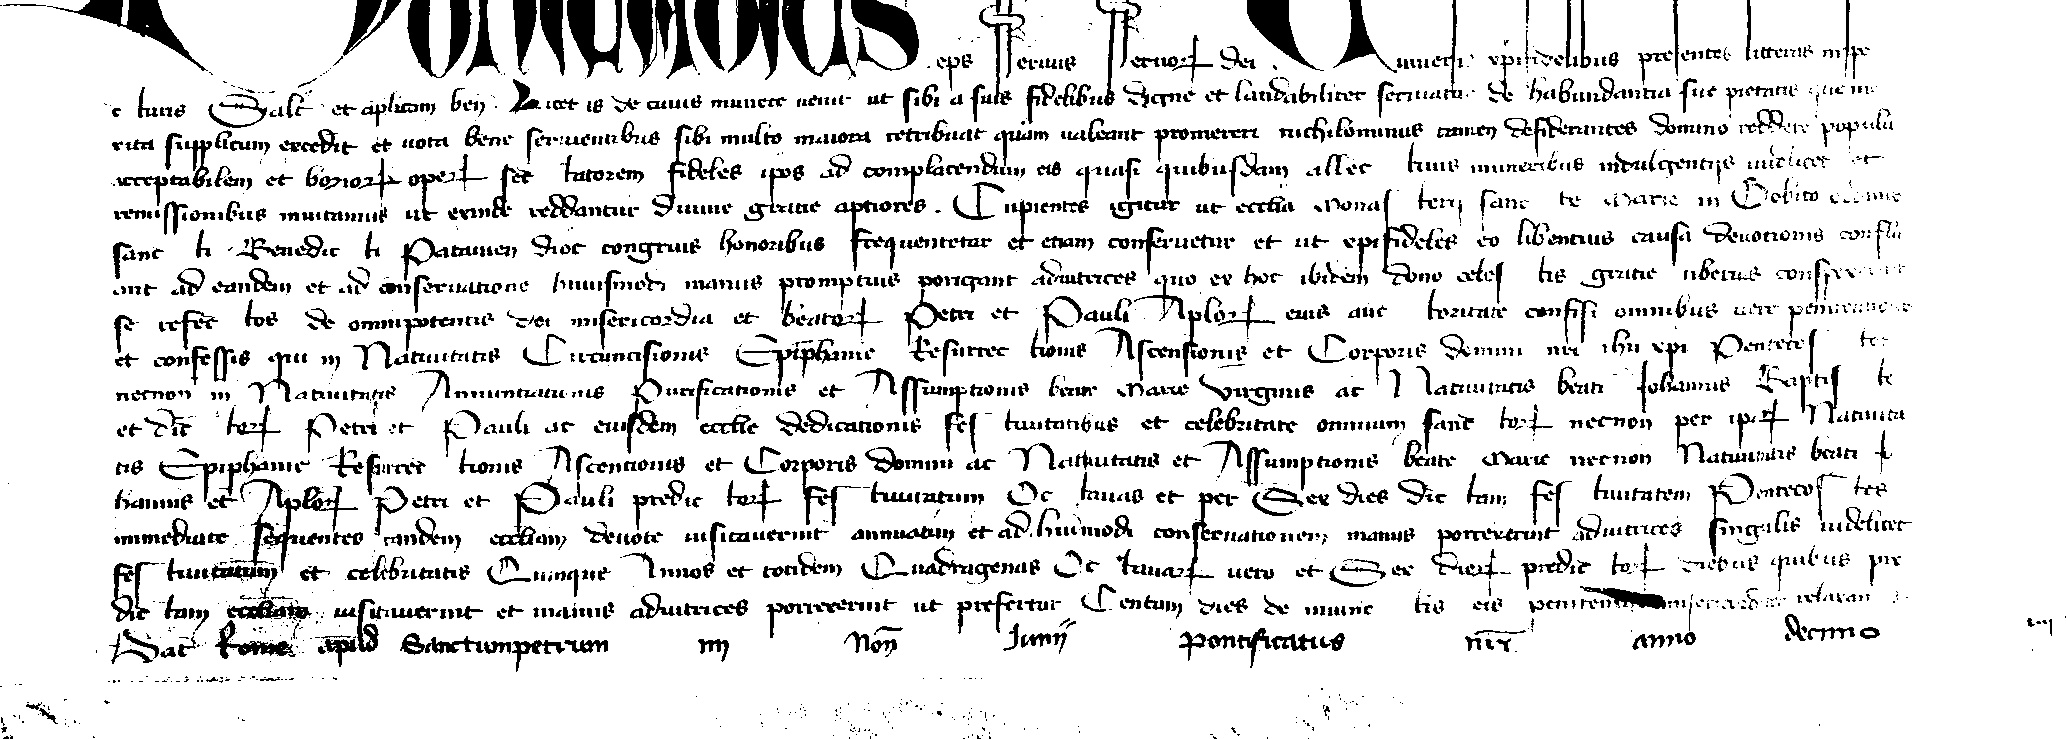 Bonifacius eps servus servor dei. Universis xpifidelibus presentes litteras inspe
c turis Salt et aplicam ben. Licet is de cuius munere venit ut sibi a suis fidelibus digne et laudabiliter serviatur de habundantia sue pietatis que me
rita supplicum excedit et vota bene servientibus sibi multo maiora retribuat quam valeant promereri nichilominus tamen desiderantes domino reddere populu
acceptabilem et bonor oper sec tatorem fideles ipos ad complacendum eis quasi quibusdam allec tivis muneribus indulgentijs videlicet et
remissionibus invitamus ut exinde reddantur divine gratie aptiores. Cupientes igitur ut ecclia Monas terij sanc te Marie in Gotwico ordinis
sanc ti Benedic ti Patavien dioc congruis honoribus frequentetur et etiam conservetur et ut xpifideles eo libentius causa devotionis conflu
ant ad eandem et ad conservatione huiusmodi manus promptius porrigant adiutrices quo ex hoc ibidem dono celes tis gratie uberius conspexerint
se refec tos de omnipotentis dei misericordia et beator Petri et Pauli Aplor eius auc toritate confisi omnibus vere penitentibus
et confessis qui in Nativitatis Circuncisionis Epiphanie Resurrec tionis Ascensionis et Corporis domini nri ihu xpi Pentecos tes
necnon in Nativitatis Annuntiationis Purificationis et Assumptionis beate Marie virginis ac Nativitatis beati Johannis Baptis te
et dic tor Petri et Pauli ac eiusdem ecclie dedicationis fes tivitatibus et celebritate omnium sanc tor necnon per ipar Nativita
tis Epiphanie Resurrec tionis Ascentionis et Corporis domini ac Nativitatis et Assumptionis beate Marie necnon Nativitatis beati Jo
hannis et Aplor Petri et Pauli predic tor fes tivitatum Oc tavas et per Sex dies dic tam fes tivitatem Pentecos tes
immediate sequentes eandem eccliam devote visitaverint annuatim et ad huiusmodi conservationem manus porrexerint adiutrices singulis videlicet
fes tivitatum et celebritatis Quinque Annos et totidem Quadragenas Oc tavar vero et Sex dier predic tor diebus quibus pre
dic tam eccliam visitaverint et manus adiutrices porrexerint ut prefertur Centum dies de iniunc tis eis penitentiis misericorditer relaxam
Dat Rome apud Sanctumpetrum iiij Non Junij Pontificatus nri anno decimo